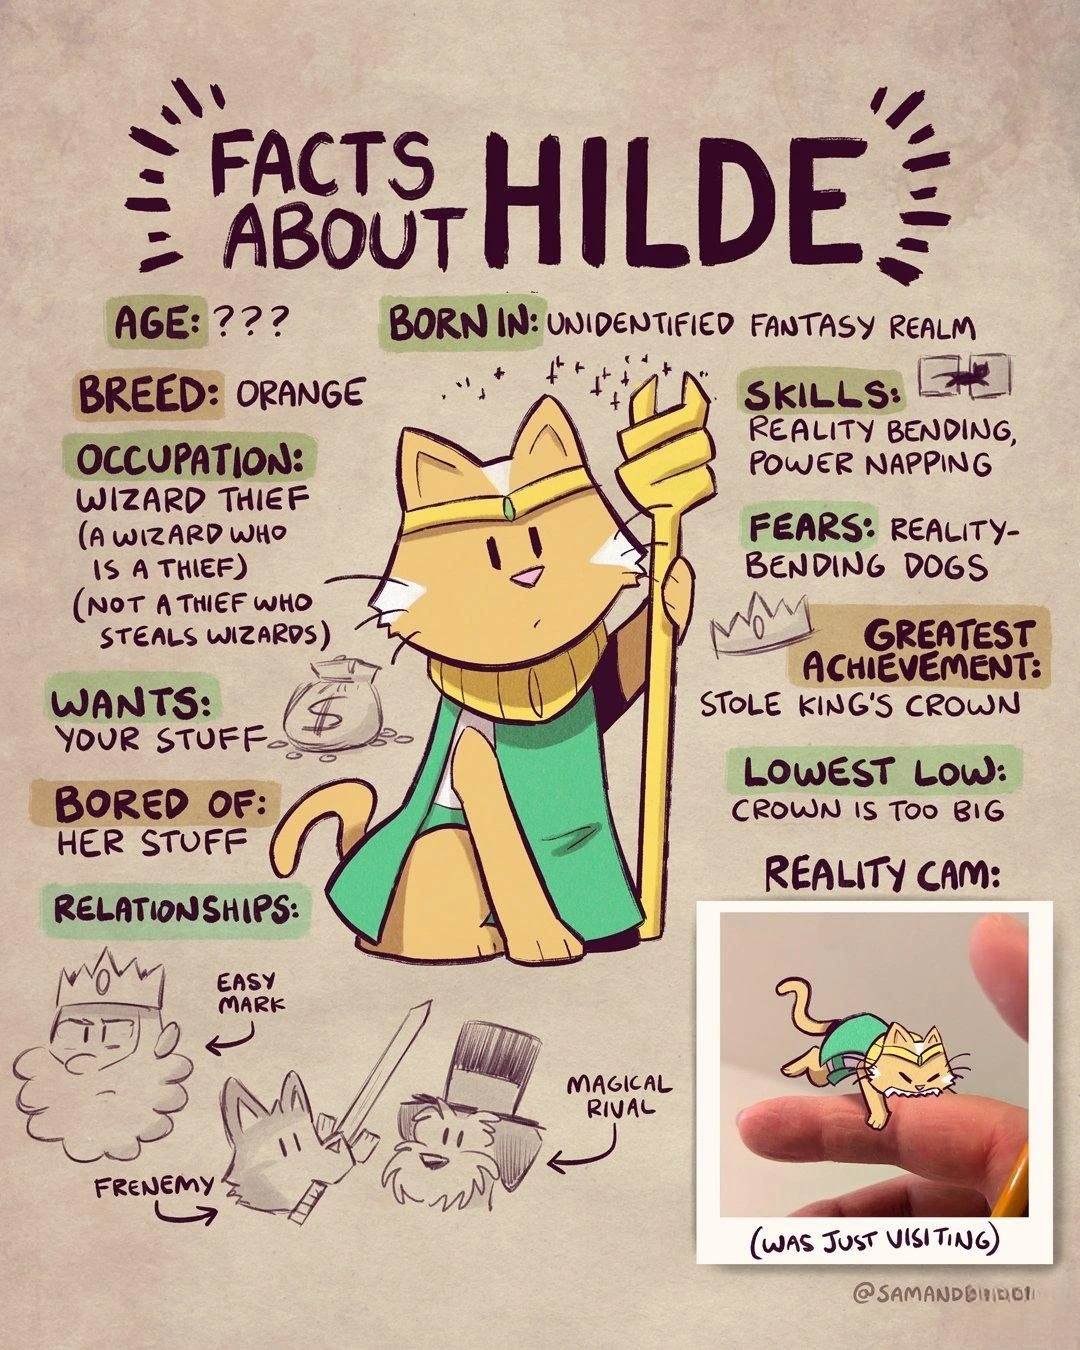 FACTS
ABOUT HILDE
AGE: ???
BORN IN: UNIDENTIFIED FANTASY REALM
BREED: ORANGE
OCCUPATION:
WIZARD THIEF
(A WIZARD WHO
IS A THIEF)
(NOT A THIEF WHO
STEALS WIZARDS)
WANTS:
YOUR STUFF
$
BORED OF:
HER STUFF
RELATIONSHIPS:
EASY
MARK
FRENEMY
MAGICAL
RIVAL
SKILLS:
REALITY BENDING,
POWER NAPPING
FEARS: REALITY-
BENDING DOGS
GREATEST
ACHIEVEMENT:
STOLE KING'S CROWN
LOWEST LOW:
CROWN IS TOO BIG
REALITY CAM:
(WAS JUST VISITING)